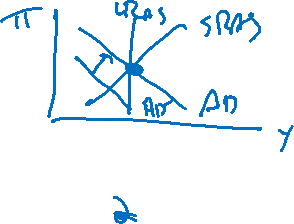 π LRAS SRAS
AD AD
Y
2